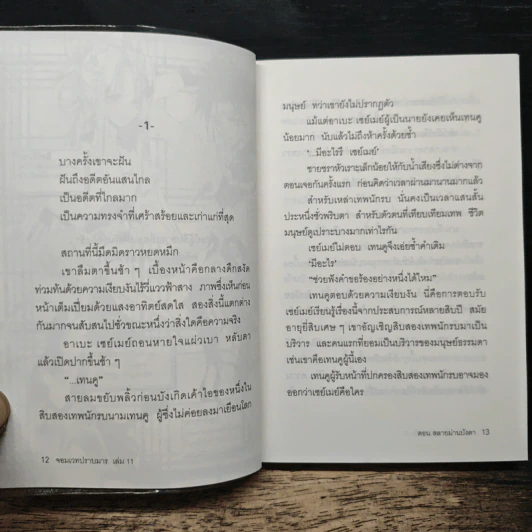 -1-
บางครั้งเขาจะฝัน
ฝันถึงอดีตอันแสนไกล
เป็นอดีตที่ไกลมาก
เป็นความทรงจำที่เศร้าสร้อยและเก่าแก่ที่สุด
สถานที่นี้มืดมิดราวหยดหมึก
เขาลืมตาขึ้นช้า ๆ เบื้องหน้าคือกลางดึกสงัด
ท่วมท้นด้วยความเงียบงันไร้แววฟ้าสาง ภาพซึ่งเห็นก่อน
หน้าเต็มเปี่ยมด้วยแสงอาทิตย์สดใส สองสิ่งนี้แตกต่าง
กันมากจนสับสนไปชั่วขณะหนึ่งว่าสิ่งใดคือความจริง
อาเบะ เซย์เมย์ถอนหายใจแผ่วเบา หลับตา
แล้วเปิดปากขึ้นช้า ๆ
“...เทนคู”
สายลมขยับพลิ้วก่อนบังเกิดเค้าไอของหนึ่งใน
สิบสองเทพนักรบนามเทนคู ผู้ซึ่งไม่ค่อยลงมาเยือนโลก
12 จอมเวทปราบมาร เล่ม 11
มนุษย์ ทว่าเขายังไม่ปรากฏตัว
แม้แต่อาเบะ เซย์เมย์ผู้เป็นนายยังเคยเห็นเทนคู
น้อยมาก นับแล้วไม่ถึงห้าครั้งด้วยซ้ำ
‘...มีอะไรรึ เซย์เมย์’
ชายชราหัวเราะเล็กน้อยให้กับน้ำเสียงซึ่งไม่ต่างจาก
ตอนเจอกันครั้งแรก ก่อนคิดว่าเวลาผ่านมานานมากแล้ว
สำหรับเหล่าเทพนักรบ นั่นคงเป็นเวลาแสนสั้น
ประหนึ่งชั่วพริบตา สำหรับตัวตนที่เทียบเทียมเทพ ชีวิต
มนุษย์ดูเปราะบางมากเท่าไรกัน
เซย์เมย์ไม่ตอบ เทนคูจึงเอ่ยซ้ำคำเดิม
‘มีอะไร’
“ช่วยฟังคำขอร้องอย่างหนึ่งได้ไหม”
เทนคูตอบด้วยความเงียบงัน นี่คือการตอบรับ
เซย์เมย์เรียนรู้เรื่องนี้จากประสบการณ์หลายสิบปี สมัย
อายุยี่สิบเศษ ๆ เขาอัญเชิญสิบสองเทพนักรบมาเป็น
บริวาร และคนแรกที่ยอมเป็นบริวารของมนุษย์ธรรมดา
เช่นเขาคือเทนคูผู้นี้เอง
เทนคูผู้รับหน้าที่ปกครองสิบสองเทพนักรบอาจมอง
ออกว่าเซย์เมย์คือใคร
ตอน สลายม่านบังตา 13